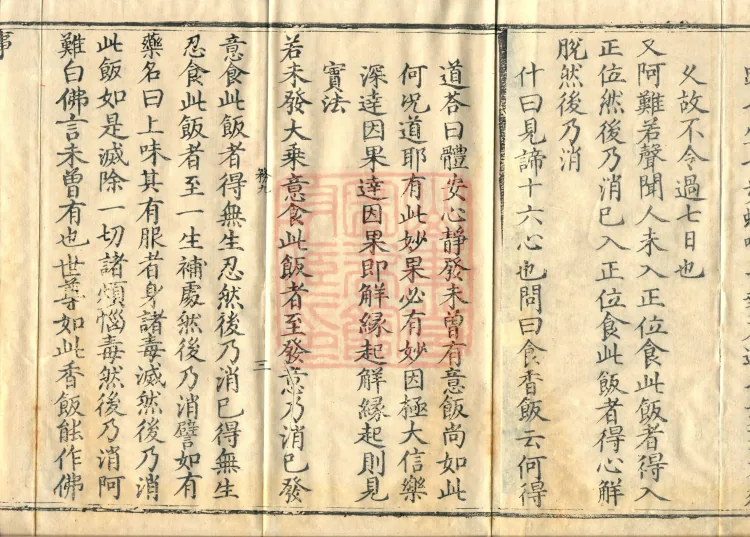 乆故不令過七日也
又阿難若聲聞人未入正位食此飯者得入
正位然後乃消已入正位食此飯者得心解
脫然後乃消
什曰見諦十六心也問曰食香飯云何得
道荅曰體安心靜發未曾有意飯尚如此
何况道耶有此妙果必有妙因極大信樂
深達因果達因果即解縁起解縁起則見
實法
若未發大乘意食此飯者至發意乃消已發
意食此飯者得無生忍然後乃消已得無生
務九
三
忍食此飯者至一生補處然後乃消譬如有
藥名曰上味其有服者身諸毒滅然後乃消
此飯如是滅除一切諸煩惱毒然後乃消阿
難白佛言未曾有也世尊如此香飯能作佛
事